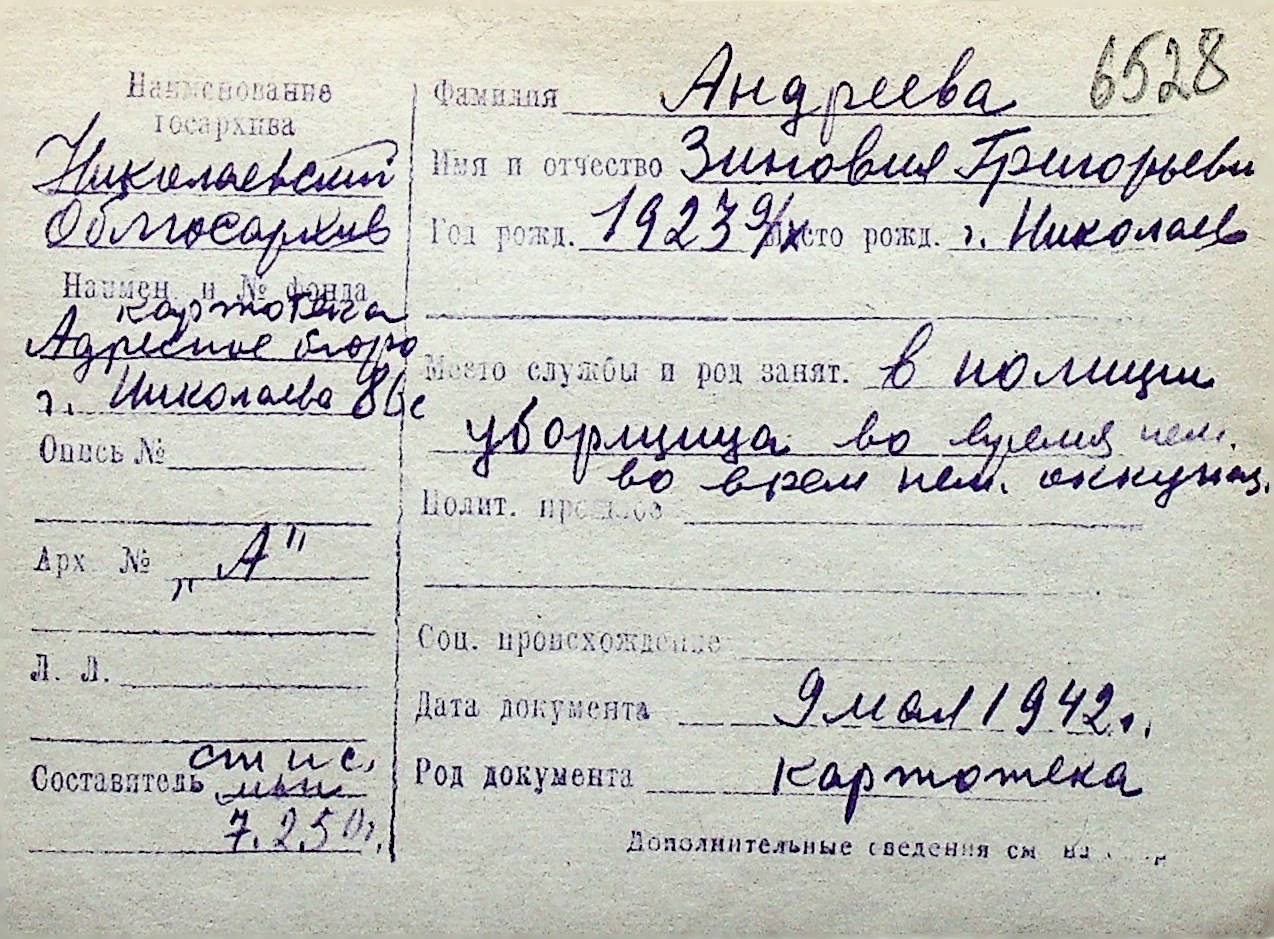 Наименование
госархива
Николаевский
Облгосархив
Наимен. и № фонда
картотека
Адресное бюро
г. Николаева
Опись №
Арх №
„А"
Л. Л.
Составитель
ст и с.
7.2.50г.
6528
Фамилия Андреева
Имя и отчество Зиновия Григорьевн
Год рожд. 1923 9/X Место рожд. г. Николаев
Место службы и род занят. в полиции
уборщица во время нем.
во врем нем. оккупац.
Полит. прошлое
Соц. происхождение
Дата документа 9 мая 1942 г.
Род документа картотека
Дополнительные сведения см на